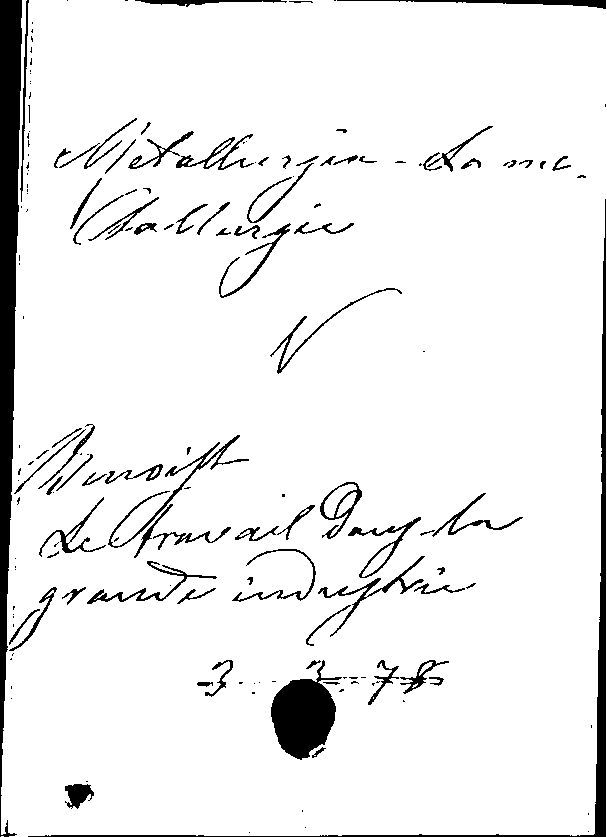 Metallurgia - La me-
tallurgie
V
Benoist
Le travail dans la
grande industrie
3 3 78